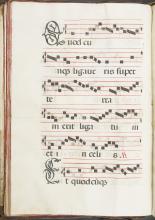 Quodcu
nqȝ ligaue ris super
te rra
m erit liga tu m
et i n celi s
Et quodcūqȝ